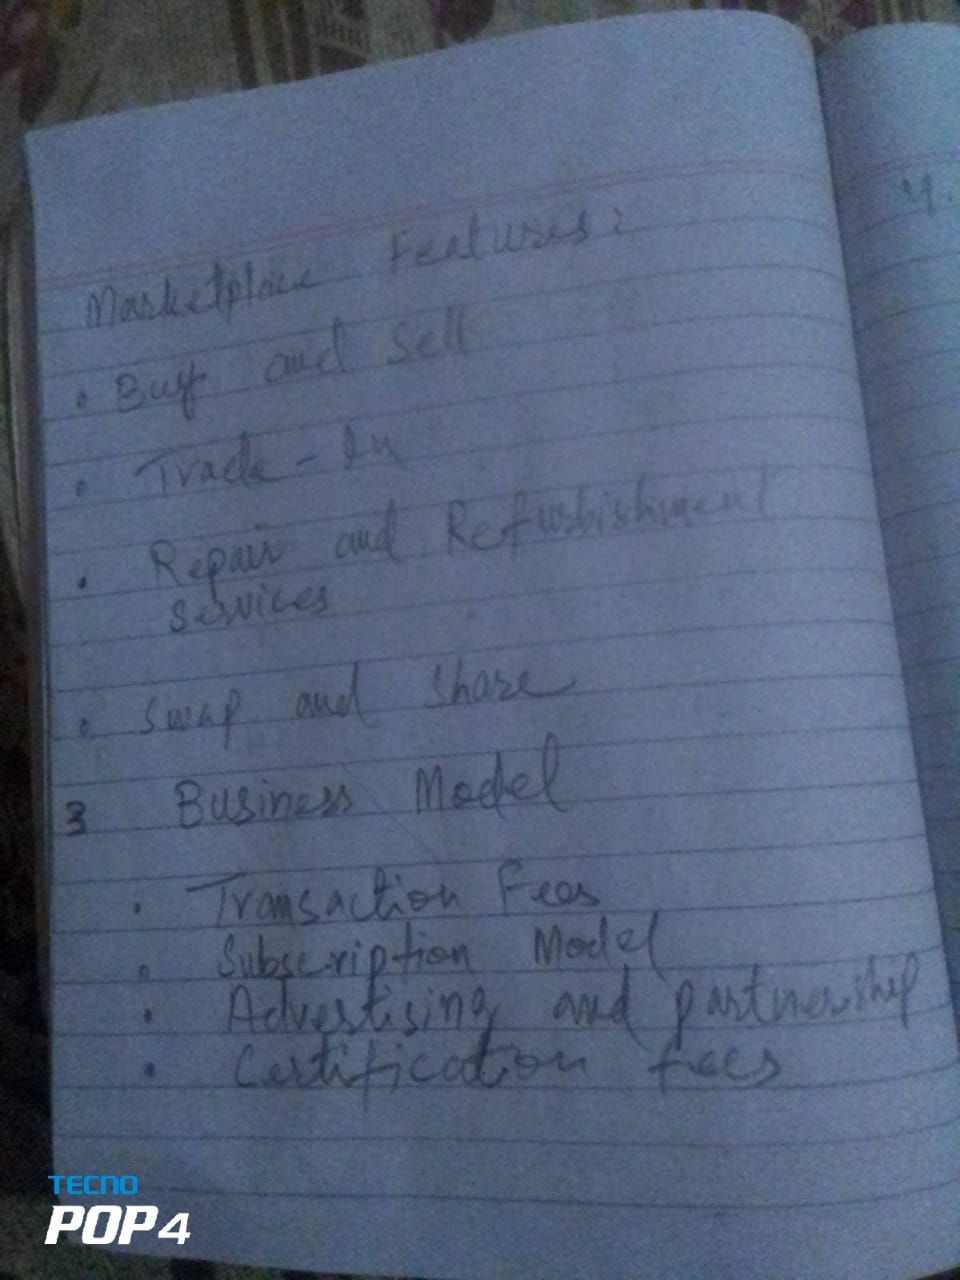 Marketplace Features:
• Buy and Sell
• Trade-In
• Repair and Refurbishment
Services
• Swap and Share
3 Business Model
• Transaction Fees
• Subscription Model
• Advertising and partnership
• Certification fees
4.
TECNO
POP 4